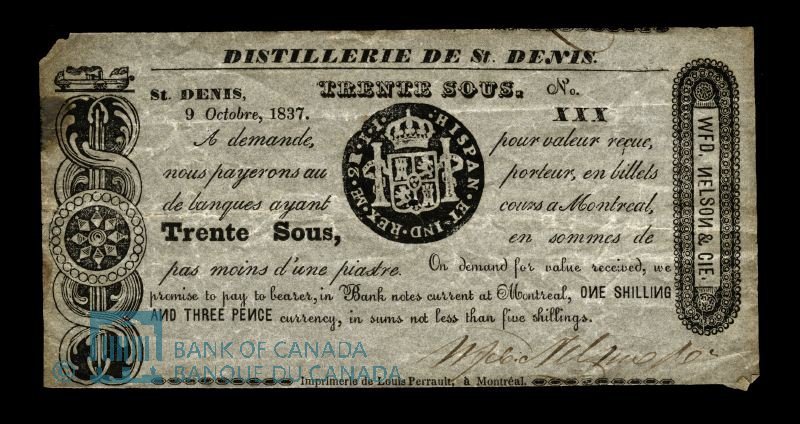 DISTILLERIE DE St. DENIS.
TRENTE SOUS.
No.
St. DENIS,
9 Octobre, 1837.
XXX
A demande, pour valeur reçue,
nous payerons au porteur, en billets
de banques ayant cours a Montreal,
Trente Sous, en sommes de
pas moins d'une piastre. On demand for value received, we
promise to pay to bearer, in Bank notes current at Montreal, ONE SHILLING
AND THREE PENCE currency, in sums not less than five shillings.
HISPAN·ET·IND·REX·M·
WFD. NELSON & CIE.
Wfd. Nelson & Co
Imprimerie de Louis Perrault, à Montréal.
© BANK OF CANADA
BANQUE DU CANADA